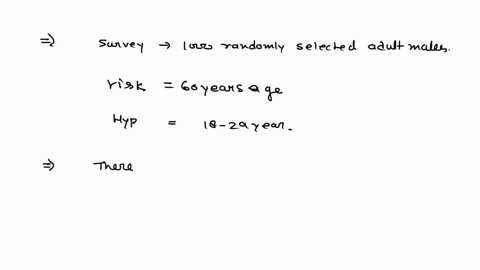 ⇒ Survey → 1000 randomly selected adult males.
risk = 60 years age
Hyp = 18-29 year.
⇒ There